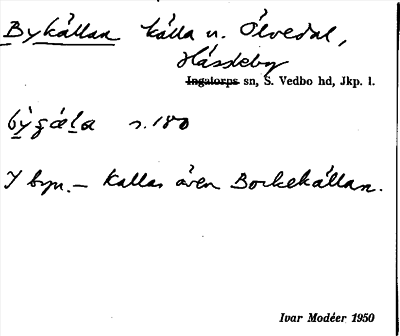 Bykällan källa u. Ölvedal,
Hässleby
Ingatorps sn, S. Vedbo hd, Jkp. l.
bỳgǽla s. 180
I byn. – Kallas även Bockekällan.
Ivar Modéer 1950